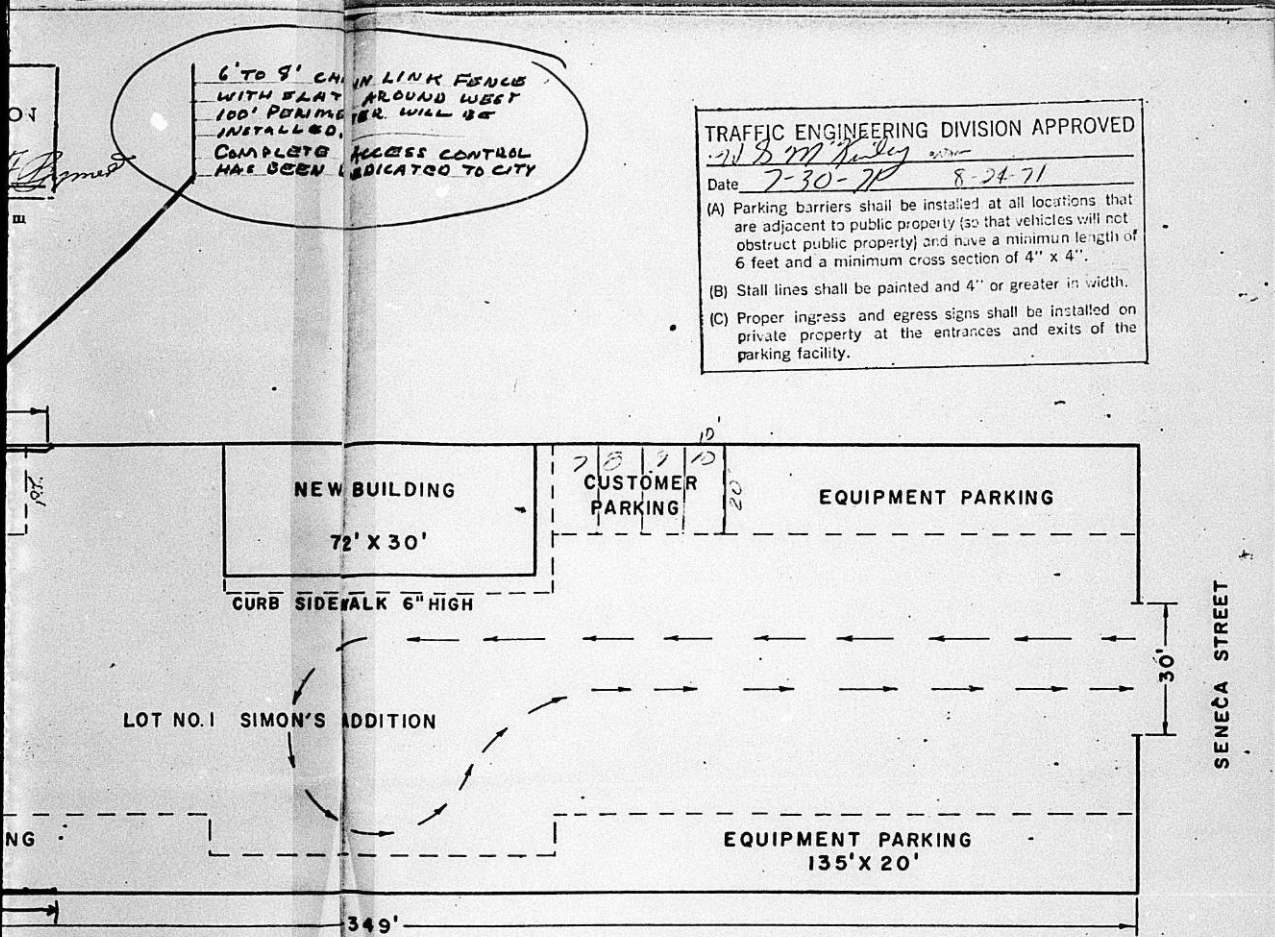 6' TO 8' CHAIN LINK FENCE
WITH SLAT AROUND WEST
100' PERIMETER WILL BE
INSTALLED.
COMPLETE ACCESS CONTROL
HAS BEEN DEDICATED TO CITY
TRAFFIC ENGINEERING DIVISION APPROVED
Date 7-30-71 8-24-71
(A) Parking barriers shall be installed at all locations that
are adjacent to public property (so that vehicles will not
obstruct public property) and have a minimun length of
6 feet and a minimum cross section of 4" x 4".
(B) Stall lines shall be painted and 4" or greater in width.
(C) Proper ingress and egress signs shall be installed on
private property at the entrances and exits of the
parking facility.
10'
7 8 9 10
NEW BUILDING
72' X 30'
CUSTOMER
PARKING
20'
EQUIPMENT PARKING
CURB SIDEWALK 6" HIGH
30'
SENECA STREET
LOT NO. 1 SIMON'S ADDITION
NG
EQUIPMENT PARKING
135' X 20'
349'